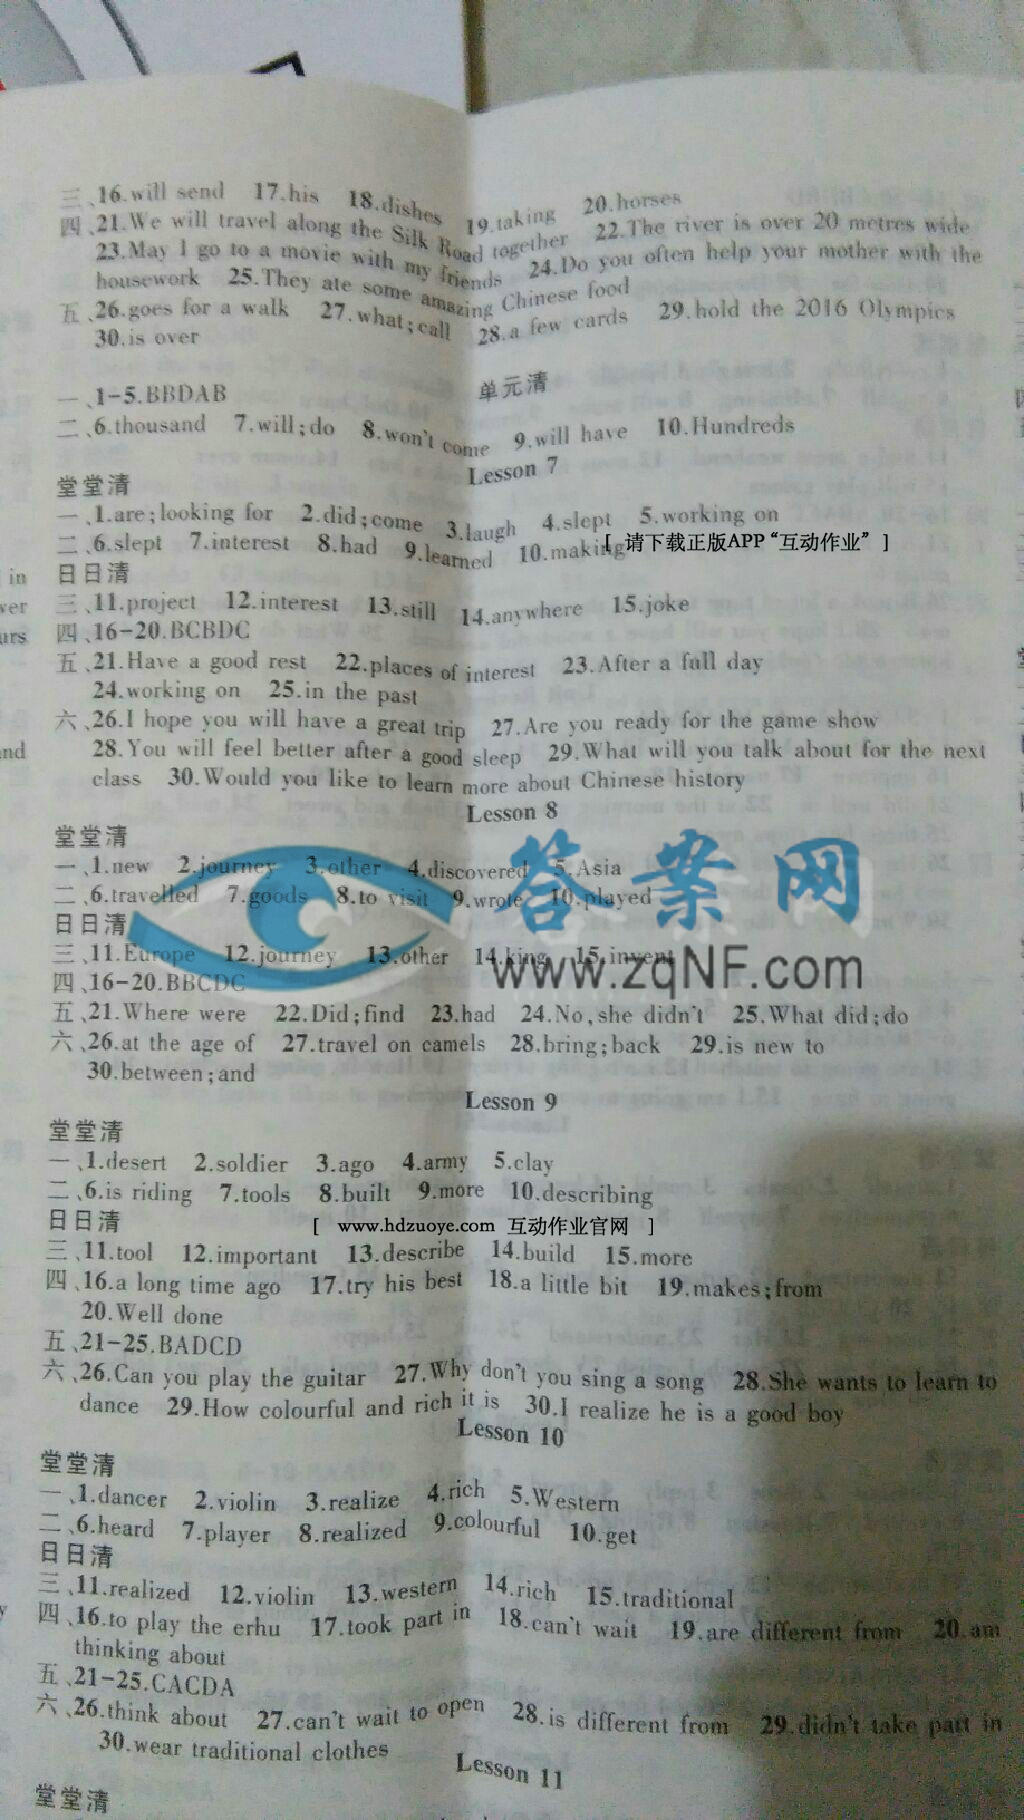 三、16.will send 17.his 18.dishes 19.taking 20.horses
四、21.We will travel along the Silk Road together 22.The river is over 20 metres wide
23.May I go to a movie with my friends 24.Do you often help your mother with the
housework 25.They ate some amazing Chinese food
五、26.goes for a walk 27.what;call 28.a few cards 29.hold the 2016 Olympics
30.is over
单元清
一、1-5.BBDAB
二、6.thousand 7.will;do 8.won't come 9.will have 10.Hundreds
Lesson 7
堂堂清
一、1.are;looking for 2.did;come 3.laugh 4.slept 5.working on
二、6.slept 7.interest 8.had 9.learned 10.making
[ 请下载正版APP“互动作业” ]
日日清
三、11.project 12.interest 13.still 14.anywhere 15.joke
四、16-20.BCBDC
五、21.Have a good rest 22.places of interest 23.After a full day
24.working on 25.in the past
六、26.I hope you will have a great trip 27.Are you ready for the game show
28.You will feel better after a good sleep 29.What will you talk about for the next
class 30.Would you like to learn more about Chinese history
Lesson 8
堂堂清
一、1.new 2.journey 3.other 4.discovered 5.Asia
二、6.travelled 7.goods 8.to visit 9.wrote 10.played
答案网
日日清
三、11.Europe 12.journey 13.other 14.king 15.invent
www.zqNF.com
四、16-20.BBCDC
五、21.Where were 22.Did;find 23.had 24.No,she didn't 25.What did;do
六、26.at the age of 27.travel on camels 28.bring;back 29.is new to
30.between;and
Lesson 9
堂堂清
一、1.desert 2.soldier 3.ago 4.army 5.clay
二、6.is riding 7.tools 8.built 9.more 10.describing
日日清
[ www.hdzuoye.com 互动作业官网 ]
三、11.tool 12.important 13.describe 14.build 15.more
四、16.a long time ago 17.try his best 18.a little bit 19.makes;from
20.Well done
五、21-25.BADCD
六、26.Can you play the guitar 27.Why don't you sing a song 28.She wants to learn to
dance 29.How colourful and rich it is 30.I realize he is a good boy
Lesson 10
堂堂清
一、1.dancer 2.violin 3.realize 4.rich 5.Western
二、6.heard 7.player 8.realized 9.colourful 10.get
日日清
三、11.realized 12.violin 13.western 14.rich 15.traditional
四、16.to play the erhu 17.took part in 18.can't wait 19.are different from 20.am
thinking about
五、21-25.CACDA
六、26.think about 27.can't wait to open 28.is different from 29.didn't take part in
30.wear traditional clothes
Lesson 11
堂堂清